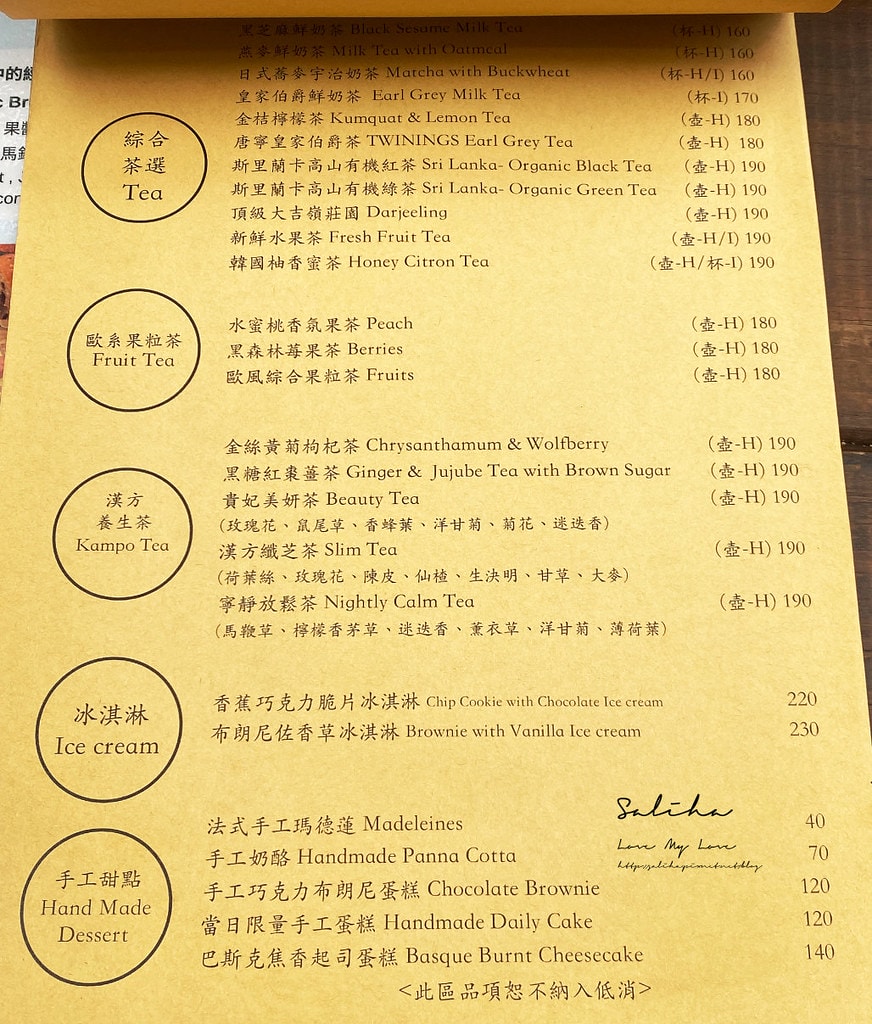 中的經
黑芝麻鮮奶茶 Black Sesame Milk Tea (杯-H) 160
燕麥鮮奶茶 Milk Tea with Oatmeal (杯-H) 160
日式蕎麥宇治奶茶 Matcha with Buckwheat (杯-H/I) 160
皇家伯爵鮮奶茶 Earl Grey Milk Tea (杯-I) 170
綜合
茶選
Tea
金桔檸檬茶 Kumquat & Lemon Tea (壺-H) 180
唐寧皇家伯爵茶 TWININGS Earl Grey Tea (壺-H) 180
斯里蘭卡高山有機紅茶 Sri Lanka- Organic Black Tea (壺-H) 190
斯里蘭卡高山有機綠茶 Sri Lanka- Organic Green Tea (壺-H) 190
頂級大吉嶺莊園 Darjeeling (壺-H) 190
新鮮水果茶 Fresh Fruit Tea (壺-H/I) 190
韓國柚香蜜茶 Honey Citron Tea (壺-H/杯-I) 190
歐系果粒茶
Fruit Tea
水蜜桃香氛果茶 Peach (壺-H) 180
黑森林莓果茶 Berries (壺-H) 180
歐風綜合果粒茶 Fruits (壺-H) 180
漢方
養生茶
Kampo Tea
金絲黃菊枸杞茶 Chrysanthamum & Wolfberry (壺-H) 190
黑糖紅棗薑茶 Ginger & Jujube Tea with Brown Sugar (壺-H) 190
貴妃美妍茶 Beauty Tea (壺-H) 190
(玫瑰花、鼠尾草、香蜂葉、洋甘菊、菊花、迷迭香)
漢方纖芝茶 Slim Tea (壺-H) 190
(荷葉絲、玫瑰花、陳皮、仙楂、生決明、甘草、大麥)
寧靜放鬆茶 Nightly Calm Tea (壺-H) 190
(馬鞭草、檸檬香茅草、迷迭香、薰衣草、洋甘菊、薄荷葉)
冰淇淋
Ice cream
香蕉巧克力脆片冰淇淋 Chip Cookie with Chocolate Ice cream 220
布朗尼佐香草冰淇淋 Brownie with Vanilla Ice cream 230
Saliha
Love My Love
http://saliha.pixnet.net/blog
手工甜點
Hand Made
Dessert
法式手工瑪德蓮 Madeleines 40
手工奶酪 Handmade Panna Cotta 70
手工巧克力布朗尼蛋糕 Chocolate Brownie 120
當日限量手工蛋糕 Handmade Daily Cake 120
巴斯克焦香起司蛋糕 Basque Burnt Cheesecake 140
<此區品項恕不納入低消>